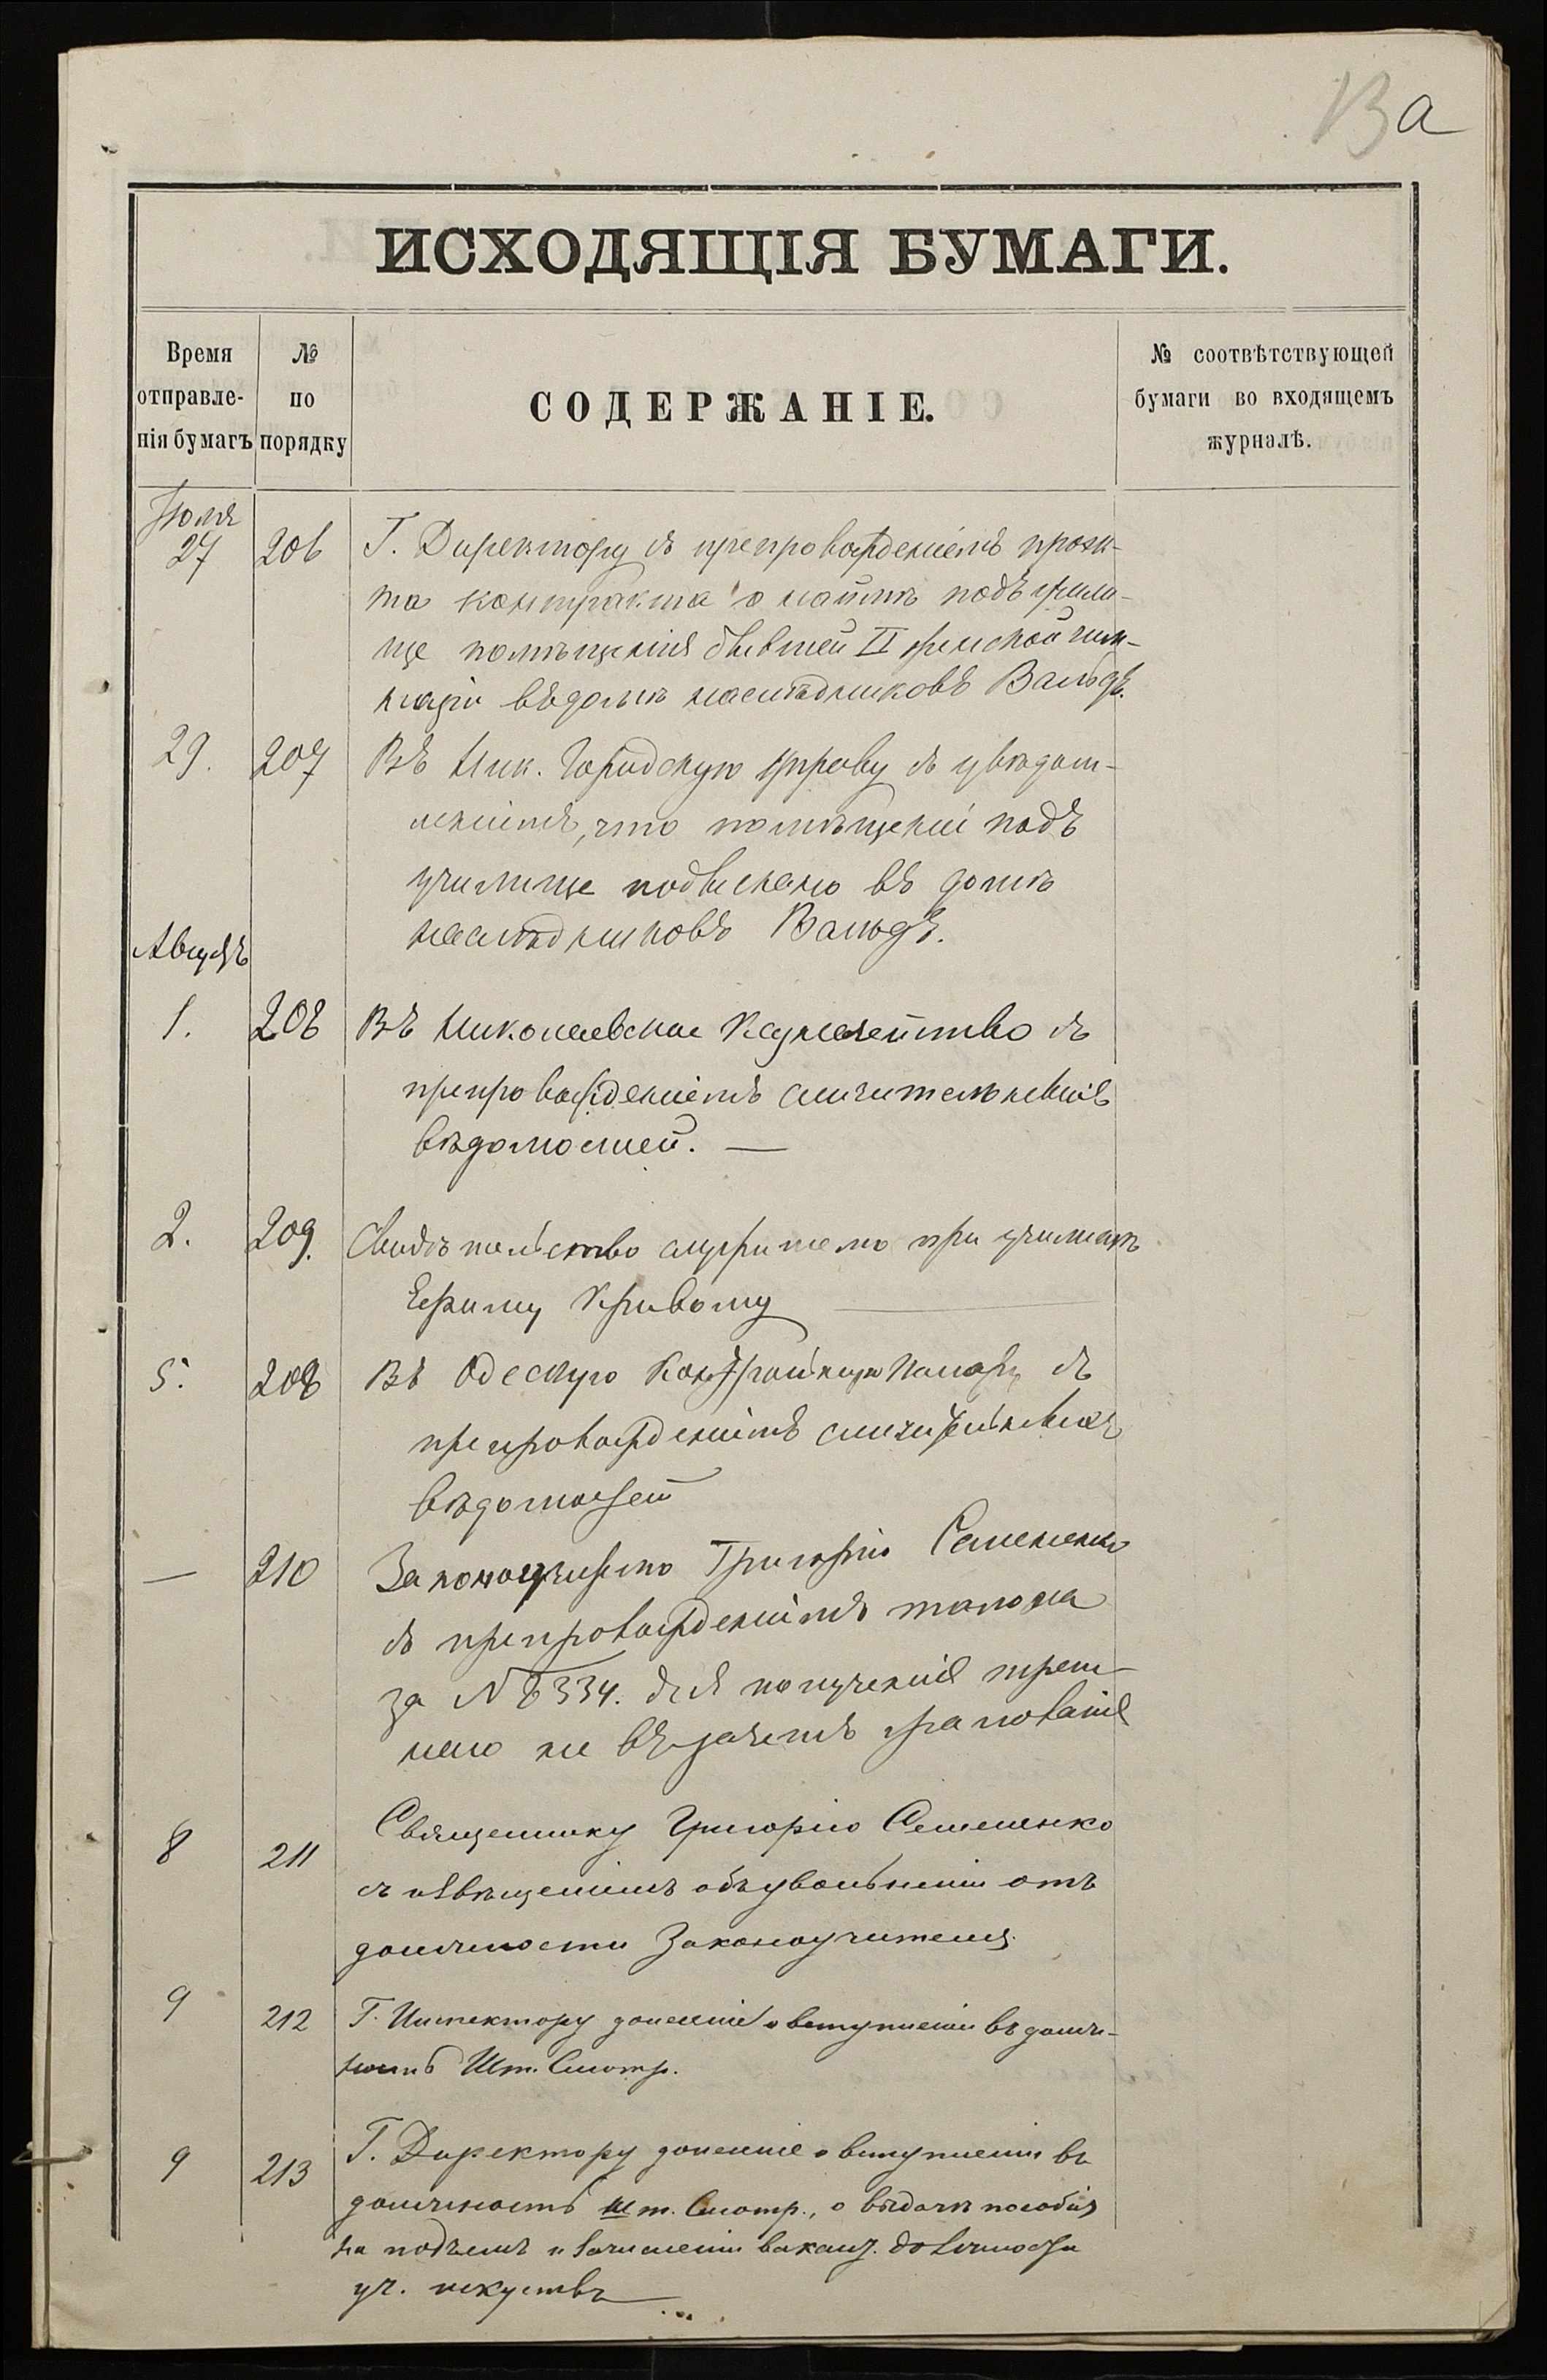 13а
ИСХОДЯЩІЯ БУМАГИ.
Время отправле-нія бумагъ
№ по порядку
СОДЕРЖАНІЕ.
№ соотвѣтствующей бумаги во входящемъ журналѣ.
Іюля
27 206 Г. Директору съ препровожденіемъ проэк-
та контракта о наймѣ подъ учили-
ще помѣщенія бывшей II женской гим-
назіи въ домѣ наслѣдниковъ Вальдъ.
29. 207 Въ Ник. Городскую управу съ увѣдом-
леніемъ, что помѣщеніе подъ
училище подыскано въ домѣ
наслѣдниковъ Вальдъ.
Августъ
1. 208 Въ Николаевское Казначейство съ
препровожденіемъ сличительныхъ
вѣдомостей. —
2. 209. Свидѣтельство служителю при училищѣ
Ефиму Кривому
5. 208 Въ Одескую Контрольную Палату съ
препровожденіемъ сличительныхъ
вѣдомостей
— 210 Законоучителю Григорію Семененко
съ препровожденіемъ талона
за № 6334. для полученія трет-
наго не въ зачетъ жалованія
8 211 Священнику Григорію Семененко
съ извѣщеніемъ объ увольненіи отъ
должности Законоучителя.
9 212 Г. Инспектору донесеніе о вступленіи въ долж-
ность Шт. Смотр.
9 213 Г. Директору донесеніе о вступленіи въ
должность Шт. Смотр., о выдачѣ пособія
на подъемъ и вакант. должности
уч. искуствъ